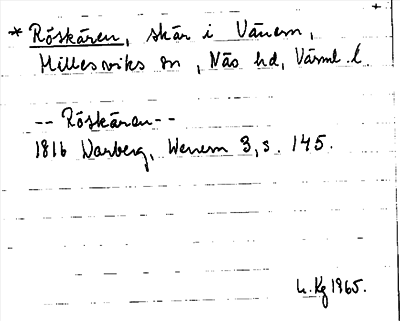 * Röskären, skär i Vänern,
Millesviks sn, Näs hd, Värml. l.
-- Röskären --
1816 Warberg, Wenern 3, s. 145.
L. Kg 1965.